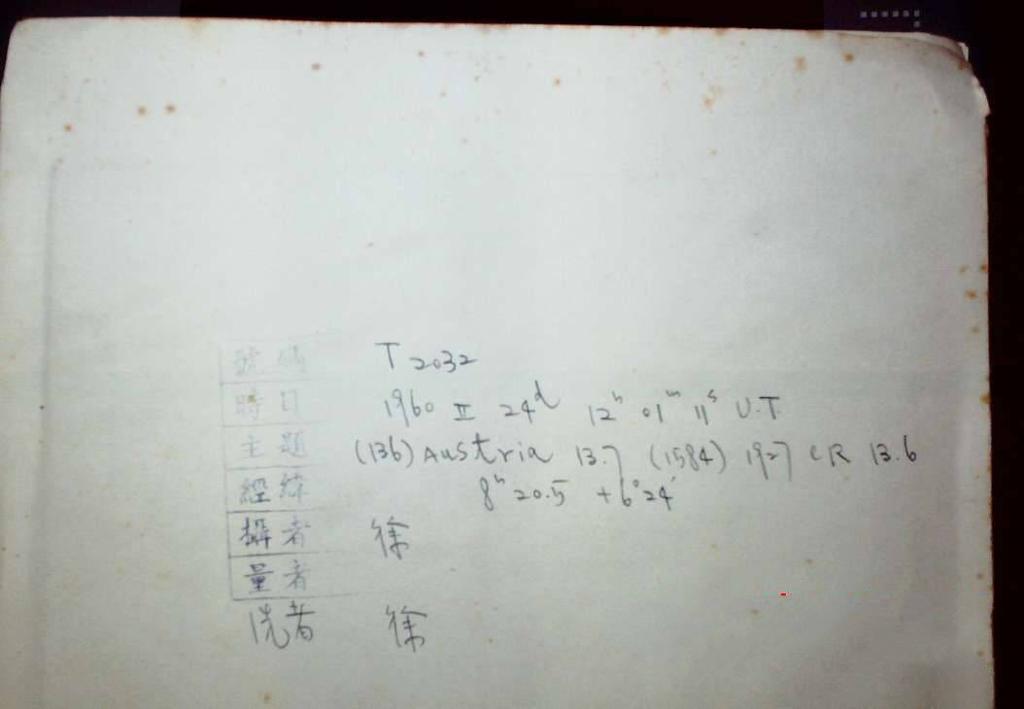 號碼 T 2032
時日 1960 II 24d 12h 01m 11s U.T
主題 (136) Austria 13.7 (1584) 1927 CR 13.6
經緯 8h 20.5 +6°24'
攝者 徐
量者
洗者 徐